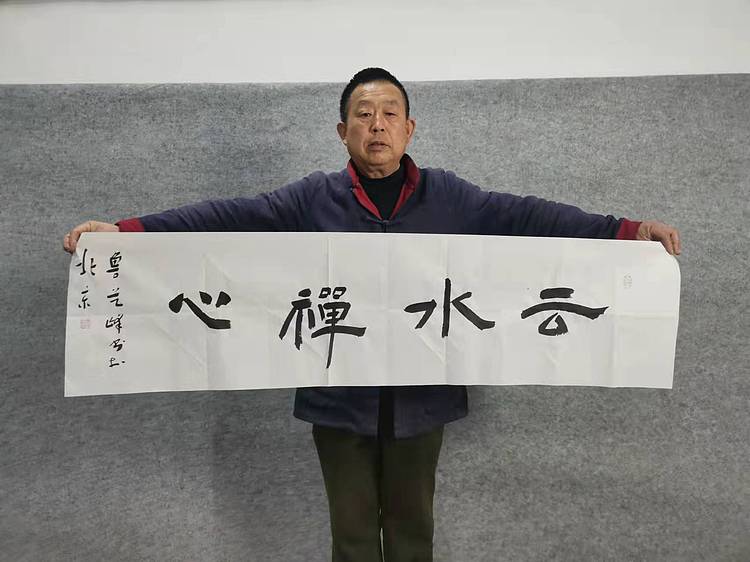 云水禪心
鲁芝峰书于
北京